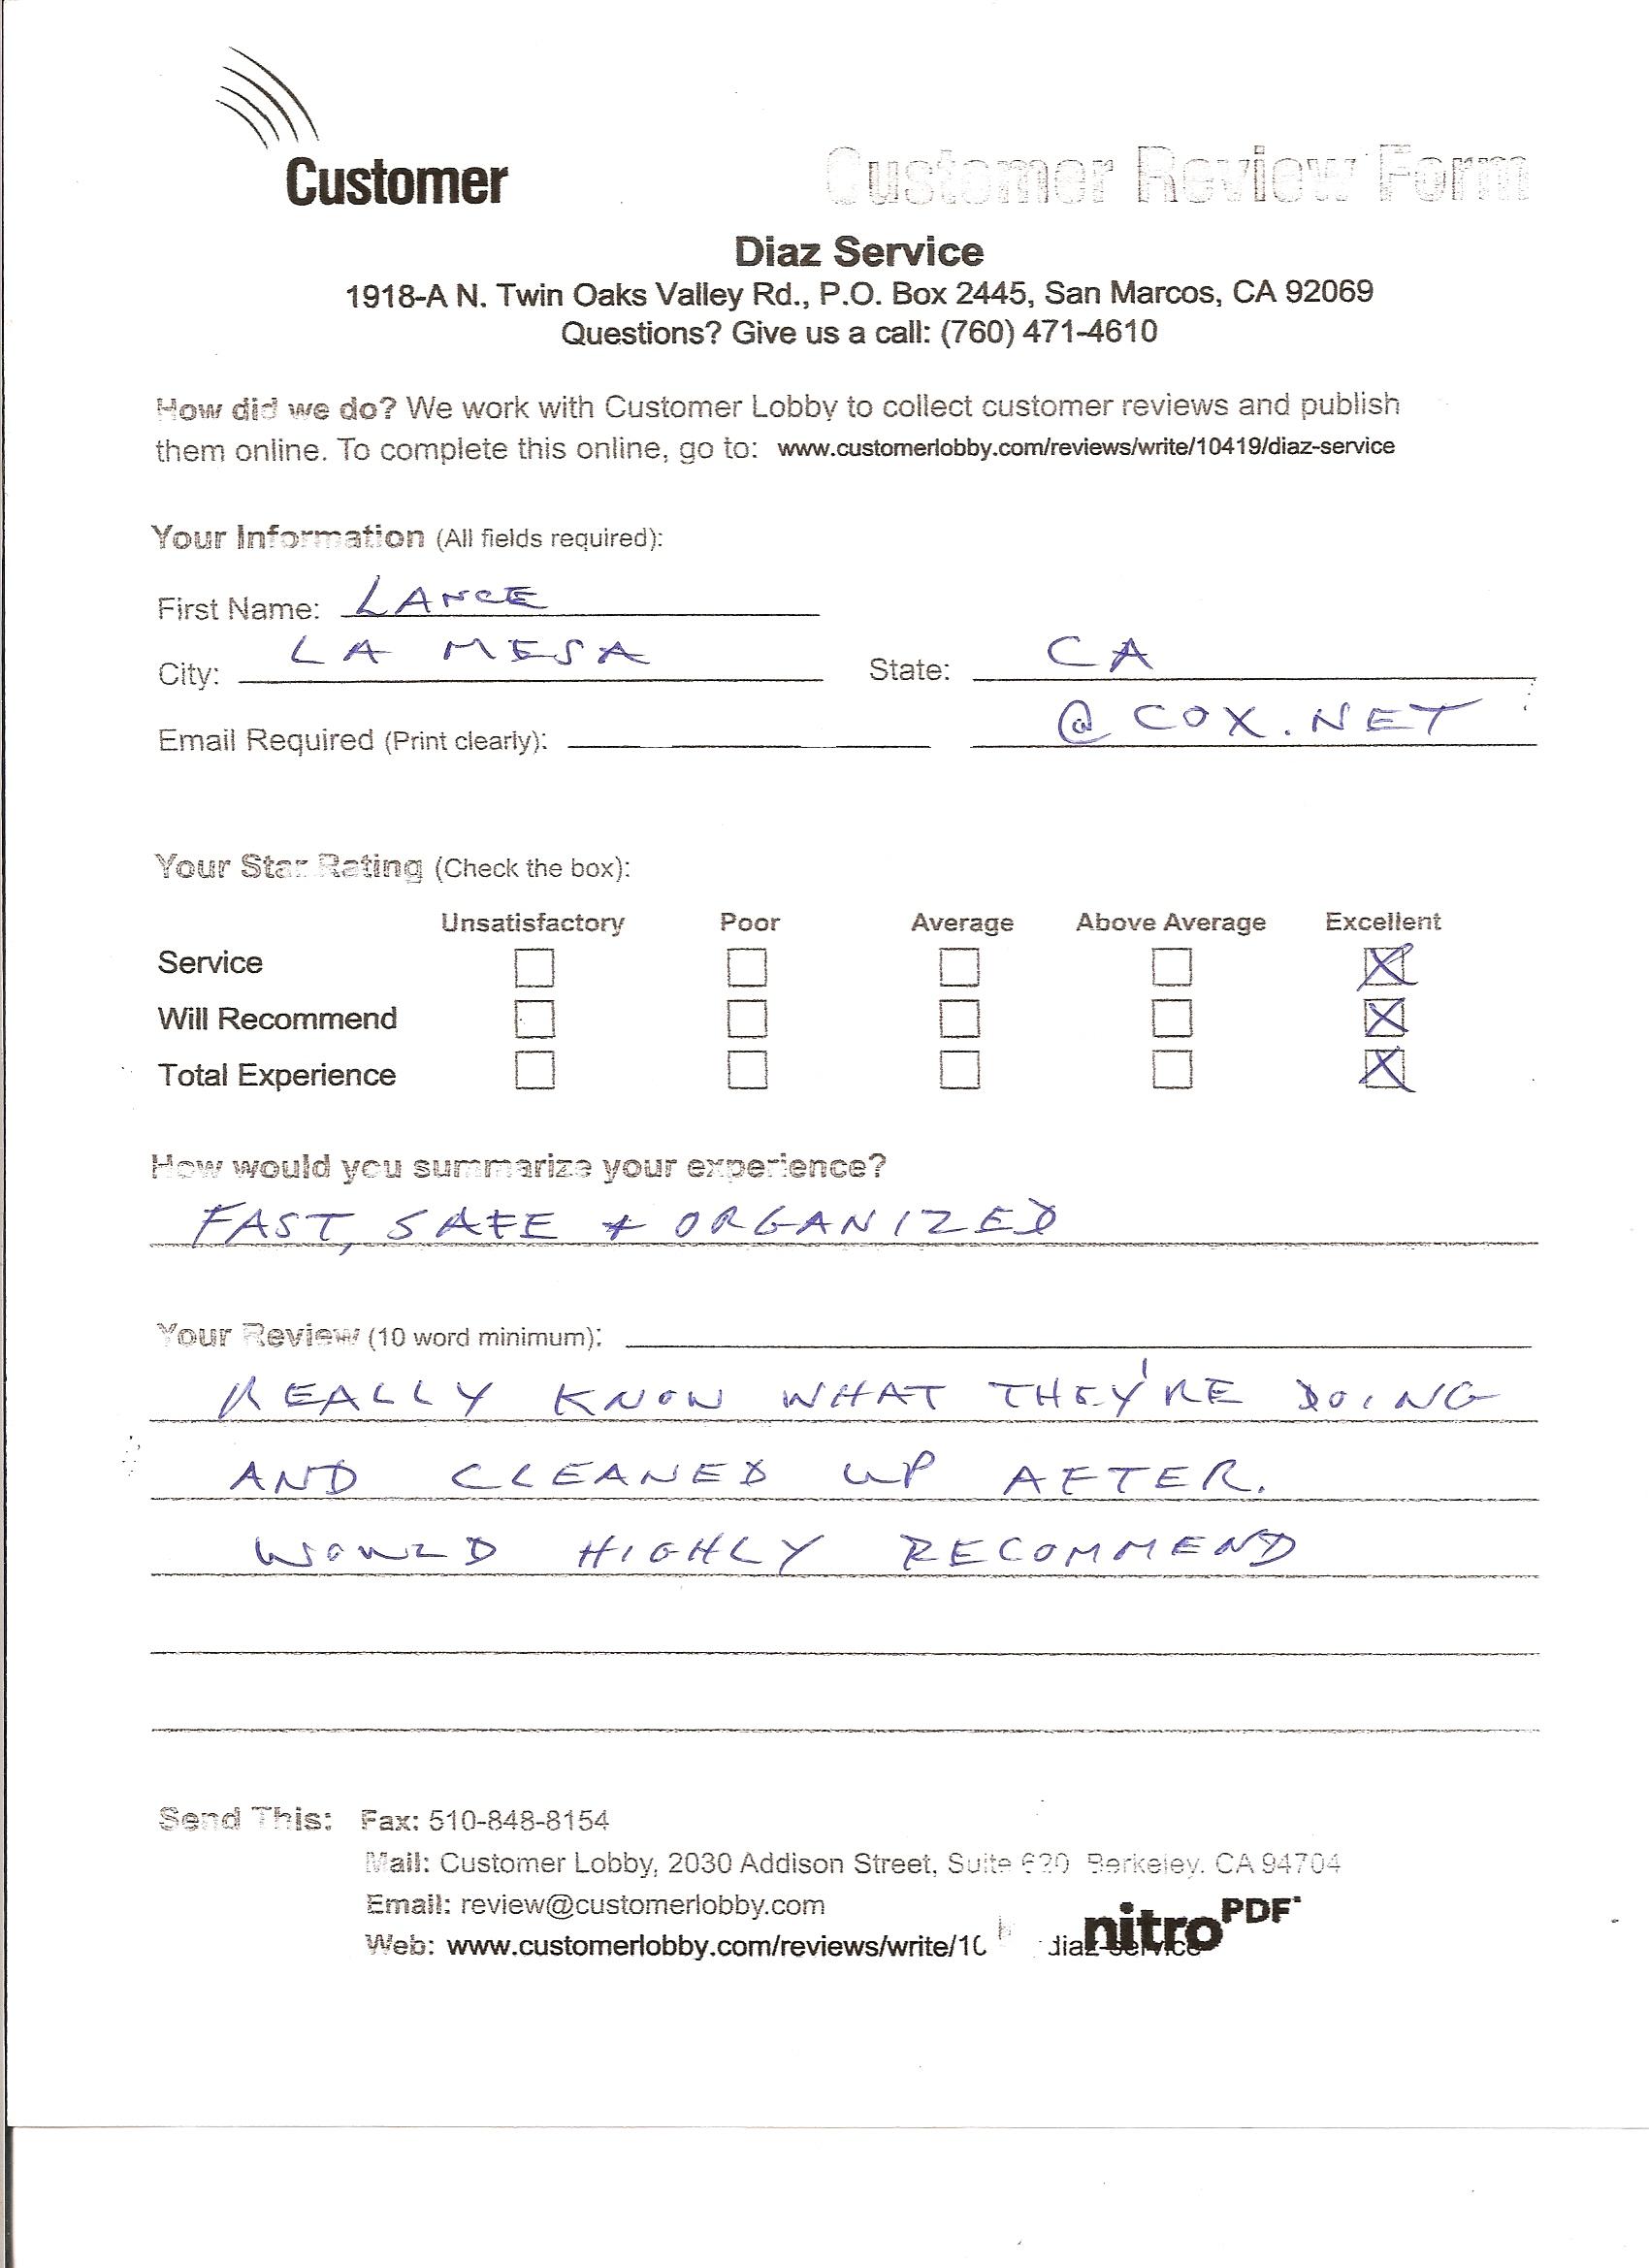 Customer
Customer Review Form
Diaz Service
1918-A N. Twin Oaks Valley Rd., P.O. Box 2445, San Marcos, CA 92069
Questions? Give us a call: (760) 471-4610
How did we do? We work with Customer Lobby to collect customer reviews and publish
them online. To complete this online, go to: www.customerlobby.com/reviews/write/10419/diaz-service
Your Information (All fields required):
First Name: LANCE
City: LA MESA State: CA
Email Required (Print clearly): @COX.NET
Your Star Rating (Check the box):
Unsatisfactory Poor Average Above Average Excellent
Service
Will Recommend
Total Experience
How would you summarize your experience?
FAST, SAFE + ORGANIZED
Your Review (10 word minimum):
REALLY KNOW WHAT THEY'RE DOING
AND CLEANED UP AFTER.
WOULD HIGHLY RECOMMEND
Send This: Fax: 510-848-8154
Mail: Customer Lobby, 2030 Addison Street, Suite 620 Berkeley, CA 94704
Email: review@customerlobby.com
Web: www.customerlobby.com/reviews/write/10 diaz-service
nitroPDF